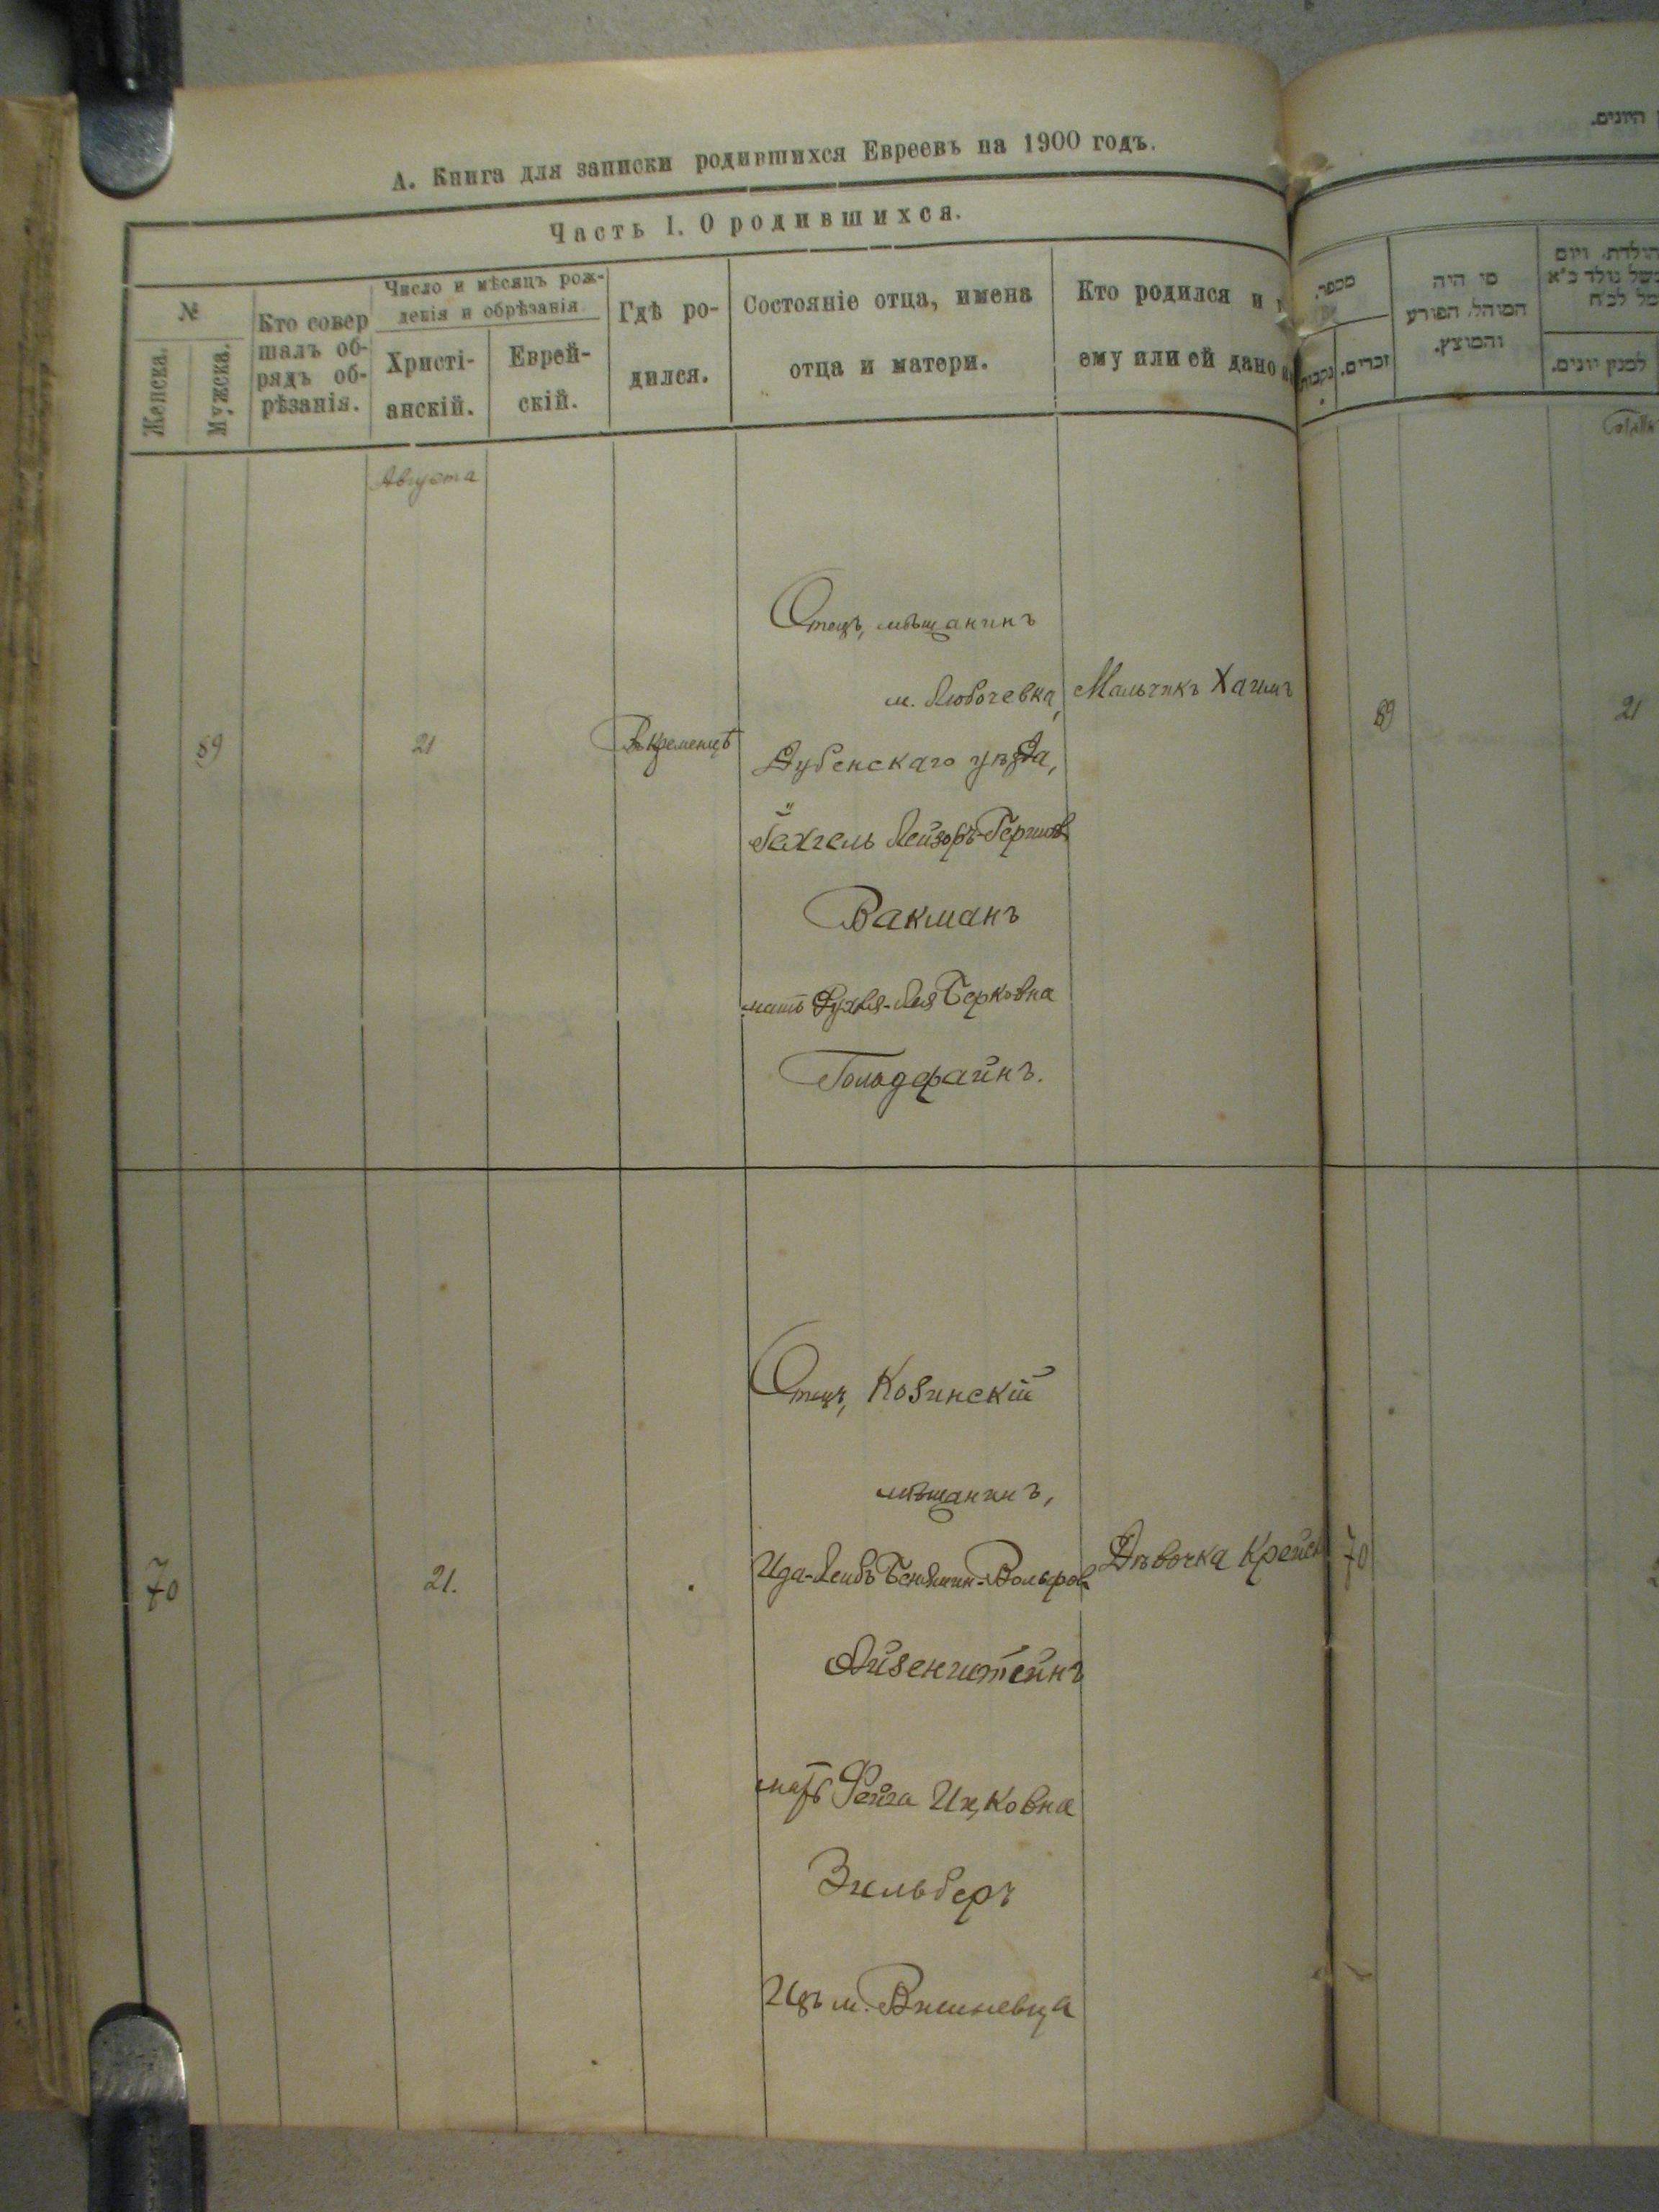 А. Книга для записки родившихся Евреевъ на 1900 годъ.
Часть I. О родившихся.
№
Женска.
Мужска.
Кто совер
шалъ об-
рядъ об-
рѣзанія.
Число и мѣсяцъ рож-
денія и обрѣзанія
Христі-
анскій.
Еврей-
скій.
Гдѣ ро-
дился.
Состояніе отца, имена
отца и матери.
Кто родился и
ему или ей дано
Августа
89
21
Въ Кременцѣ
Отецъ, мѣщанинъ
м. Любочевка,
Дубенскаго уѣзда,
Лейзоръ-Гершов
Вакманъ
мать Рухля-Лея Берковна
Гольдфайнъ.
Мальчикъ Хаимъ
70
21.
Отецъ, Козинскій
мѣщанинъ,
Ида-Лейбъ Беньямин-Вольфов
Айзенштейнъ
мать Фейга Ицковна
Зильберъ
Изъ м. Вишневца
Дѣвочка
היונים.
מספר.
נקבות
זכרים.
מי היה
המוהל, הפורע
והמוצץ.
למנין יונים.
89
21
70